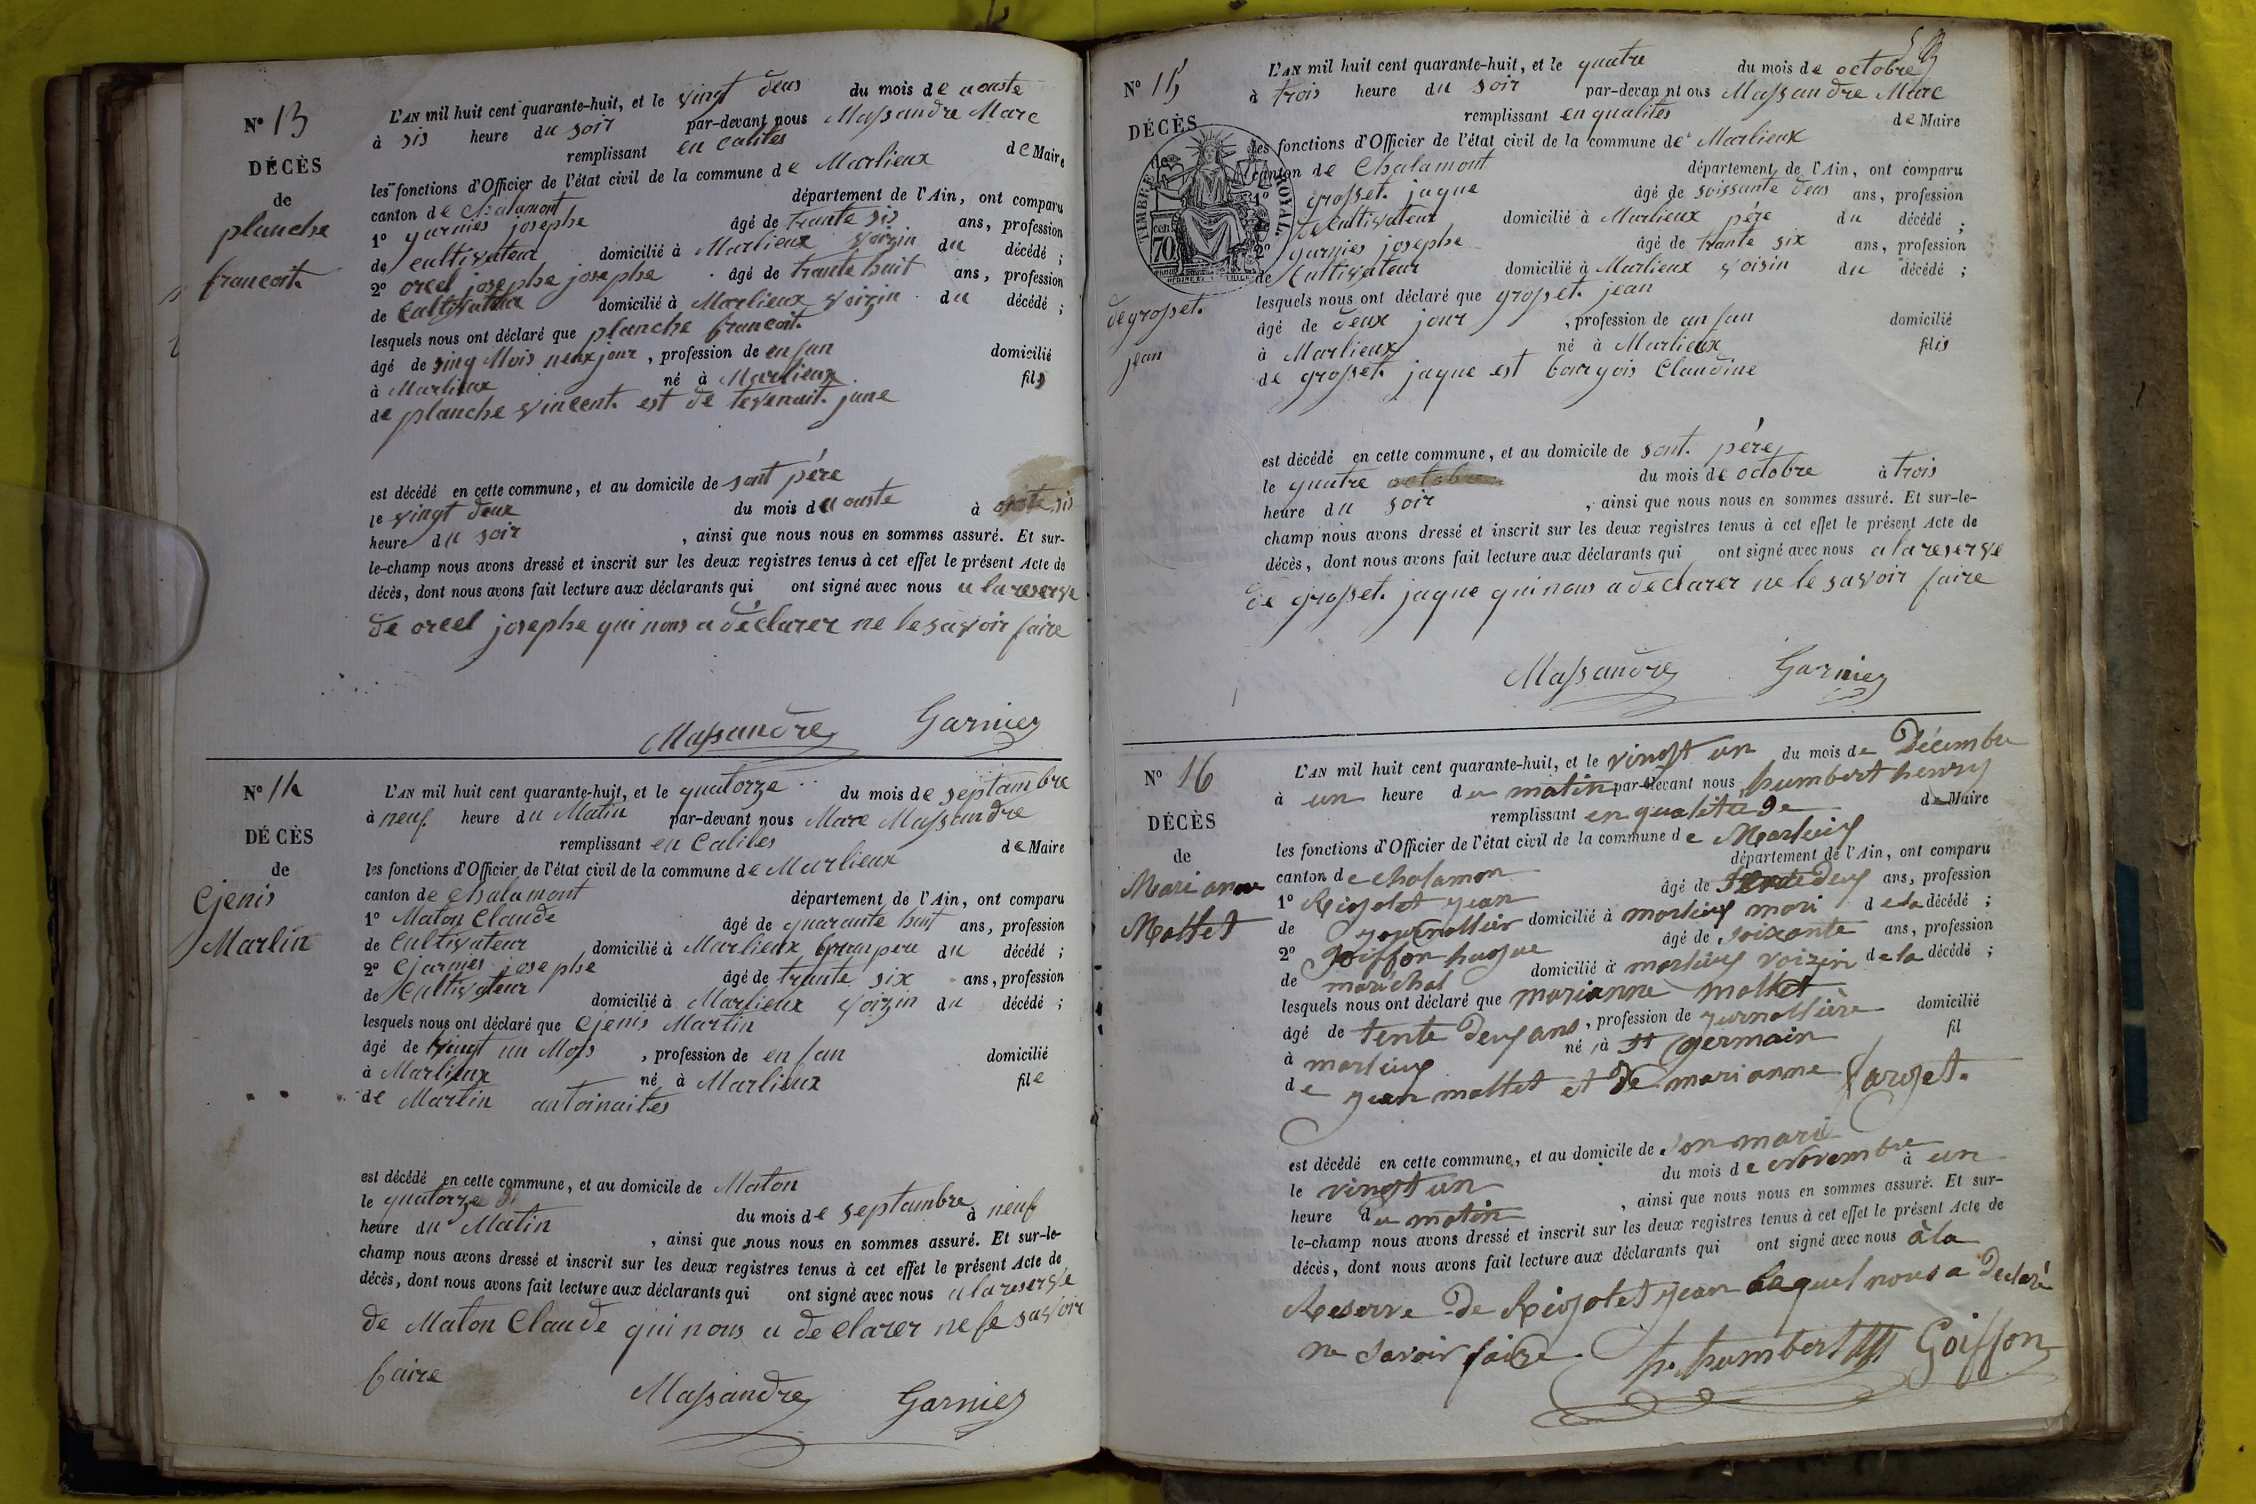 N° 13
DÉCÈS
de
planche
francoit.
L'AN mil huit cent quarante-huit, et le vingt deus du mois de aouste
à sis heure du soir par-devant nous Massandre Marc
remplissant en calites de Maire
les fonctions d'Officier de l'état civil de la commune de Marlieux
canton de chalamont département de l'Ain, ont comparu
1° garnies josephe âgé de trante sis ans, profession
de cultivateur domicilié à Marlieux voizin du décédé ;
2° orcel josephe josephe âgé de trante huit ans, profession
de Caltivateur domicilié à Marlieux voizin du décédé ;
lesquels nous ont déclaré que planche francoit.
âgé de sinq Mois neux jour, profession de enfan domicilié
à Marlieux né à Marlieux fils
de planche vincent. est de tevenait. jane
est décédé en cette commune, et au domicile de sont père
le vingt deux du mois de aouste à sis
heure du soir, ainsi que nous nous en sommes assuré. Et sur-
le-champ nous avons dressé et inscrit sur les deux registres tenus à cet effet le présent Acte de
décès, dont nous avons fait lecture aux déclarants qui ont signé avec nous a la reserve
de orcel josephe qui nous a déclarer ne le savoir faire
Massandre Garnier
N° 14
DÉCÈS
de
Cjenis
Martin
L'AN mil huit cent quarante-huit, et le quatorze du mois de septambre
à neuf heure du Matin par-devant nous Marc Massandre
remplissant en Calites de Maire
les fonctions d'Officier de l'état civil de la commune de Marlieux
canton de chalamont département de l'Ain, ont comparu
1° Maton Claude âgé de quarante huit ans, profession
de Cultivateur domicilié à Marlieux granpere du décédé ;
2° Cjarnies josephe âgé de trante six ans, profession
de Cultivateur domicilié à Marlieux voizin du décédé ;
lesquels nous ont déclaré que Cjenis Martin
âgé de vingt un Mois, profession de enfan domicilié
à Marlieux né à Marlieux file
de Martin antoinaites
est décédé en cette commune, et au domicile de Maton
le quatorze du mois de septambre à neuf
heure du Matin, ainsi que nous nous en sommes assuré. Et sur-le-
champ nous avons dressé et inscrit sur les deux registres tenus à cet effet le présent Acte de
décès, dont nous avons fait lecture aux déclarants qui ont signé avec nous a la reserve
de Maton Claude qui nous a declarer ne le savoir
faire
Massandre Garnier
N° 15
DÉCÈS
de grosset.
jean
TIMBRE ROYAL
70
L'AN mil huit cent quarante-huit, et le quatre du mois de octobre
à trois heure du soir par-devan nt ous Massandre Marc
remplissant en qualites de Maire
les fonctions d'Officier de l'état civil de la commune de Marlieux
canton de Chalamont département de l'Ain, ont comparu
1° grosset. jaque âgé de soissante deus ans, profession
de Cultivateur domicilié à Marlieux père du décédé ;
2° garnies josephe âgé de trante six ans, profession
de Cultivateur domicilié à Marlieux voisin du décédé ;
lesquels nous ont déclaré que grosset. jean
âgé de deux jour, profession de anfan domicilié
à Marlieux né à Marlieux filis
de grosset. jaque est bourgois Claudine
est décédé en cette commune, et au domicile de sont. père
le quatre octobre du mois de octobre à trois
heure du soir, ainsi que nous nous en sommes assuré. Et sur-le-
champ nous avons dressé et inscrit sur les deux registres tenus à cet effet le présent Acte de
décès, dont nous avons fait lecture aux déclarants qui ont signé avec nous a la reserve
de grosset. jaque qui nous a declarer ne le savoir faire
Massandre Garnier
N° 16
DÉCÈS
de
Marianne
Mottet
L'AN mil huit cent quarante-huit, et le vingt un du mois de Décembre
à un heure du matin par-devant nous humbert henry
remplissant en qualité de de Maire
les fonctions d'Officier de l'état civil de la commune de Marlieux
canton de chalamon département de l'Ain, ont comparu
1° Rigolet jean âgé de trente deux ans, profession
de journallier domicilié à marlieux mari de la décédé ;
2° Goiffon hugue âgé de soixante ans, profession
de maréchal domicilié à marlieux voizin de la décédé ;
lesquels nous ont déclaré que marianne mottet
âgé de tente deux ans, profession de journallière domicilié
à marlieux né à St germain fil
de jean mottet et de marianne farget.
est décédé en cette commune, et au domicile de son mari
le vingt un du mois de Novembre à un
heure du matin, ainsi que nous nous en sommes assuré. Et sur-
le-champ nous avons dressé et inscrit sur les deux registres tenus à cet effet le présent Acte de
décès, dont nous avons fait lecture aux déclarants qui ont signé avec nous à la
Reserve de Rigolet jean lequel nous a declaré
ne savoir faire. h. humbert Goiffon